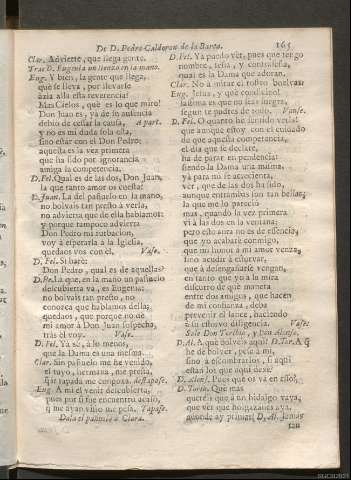 De D. Pedro Calderon de la Barca. 165
Clar. Advierte, que llega gente.
Tras D. Eugenia un lienzo en la mano.
Eug. Y bien, la gente que llega,
què se lleva, por llevarle
àzia allà esta reverencia?
Mas Cielos, què es lo que miro!
Don Juan es, ya de su ausencia
debiò de cessar la causa, à part.
y no es mi duda sola esta,
sino estar con èl Don Pedro;
aquesta es la vez primera
que ha sido por ignorancia
amiga la competencia.
D. Fel. Qual es de las dos, Don Juan,
la que tanto amor os cuesta?
D. Juan. La del pañuelo en la mano,
no bolvais tan presto à verla,
no advierta que de ella hablamos:
y porque tampoco advierta
Don Pedro mi turbacion,
voy à esperarla à la Iglesia,
quedaos vos con èl. Vase.
D. Fel. Sì harè:
Don Pedro, qual es de aquellas?
D. Pe. La que en la mano un pañuelo
descubierta và, es Eugenia:
no bolvais tan presto, no
conozca que hablamos della;
quedaos, que porque no dè
mi amor à Don Juan sospecha,
tràs èl voy. Vase.
D. Fel. Ya sè, à lo menos,
que la Dama es una mesma.
Clar. Sin pañuelo me he venido,
el tuyo, hermana, me presta,
que tapada me compona. destapase.
Eug. A mì el venir descubierta,
pues por si fue encuentro acaso,
que me ayan visto me pesa, Tapase.
Dala el pañuelo à Clara.
D. Fel. Ya puedo vèr, pues que tengo
nombre, seña, y contraseña,
qual es la Dama que adoran.
Clar. No à mirar el rostro buelvas.
Eug. Jesus, y què condicion!
lastima es que no seas suegra,
segun te pudres de todo. Vanse.
D. Fel. O quanto he sentido verla!
que aunque estoy con el cuidado
de que aquesta competencia,
el dia que se declare,
ha de parar en pendencia;
siendo la Dama una misma,
ya para mi se acrecienta,
vèr, que de las dos ha sido,
aunque entrambas son tan bellas,
la que me lo pareciò
mas, quando la vez primera
vì à las dos en la ventana;
pero esto aora no es de essencia,
que yo acabarè conmigo,
que mi honor à mi amor venza,
sino acudir à estorvar,
que à desengañarse vengan,
en tanto que yo à la mira
discurro de què manera
entre dos amigos, que hacen
de mì confianza, deba
prevenir el lance, haciendo
à su disgusto diligencia. Vase.
Sale Don Toribio, y Don Alonso.
D. Al. A què bolveis aqui? D. Tor. A què
he de bolver, pese à mi,
sino à escombrarlos, si aqui
estàn los que aqui dexè?
D. Alons. Pues què os và en esso?
D. Torib. Què mas
quereis que à un hidalgo vaya,
que vèr que holgazanes aya,
adonde ay primas? D. Al. Jamàs